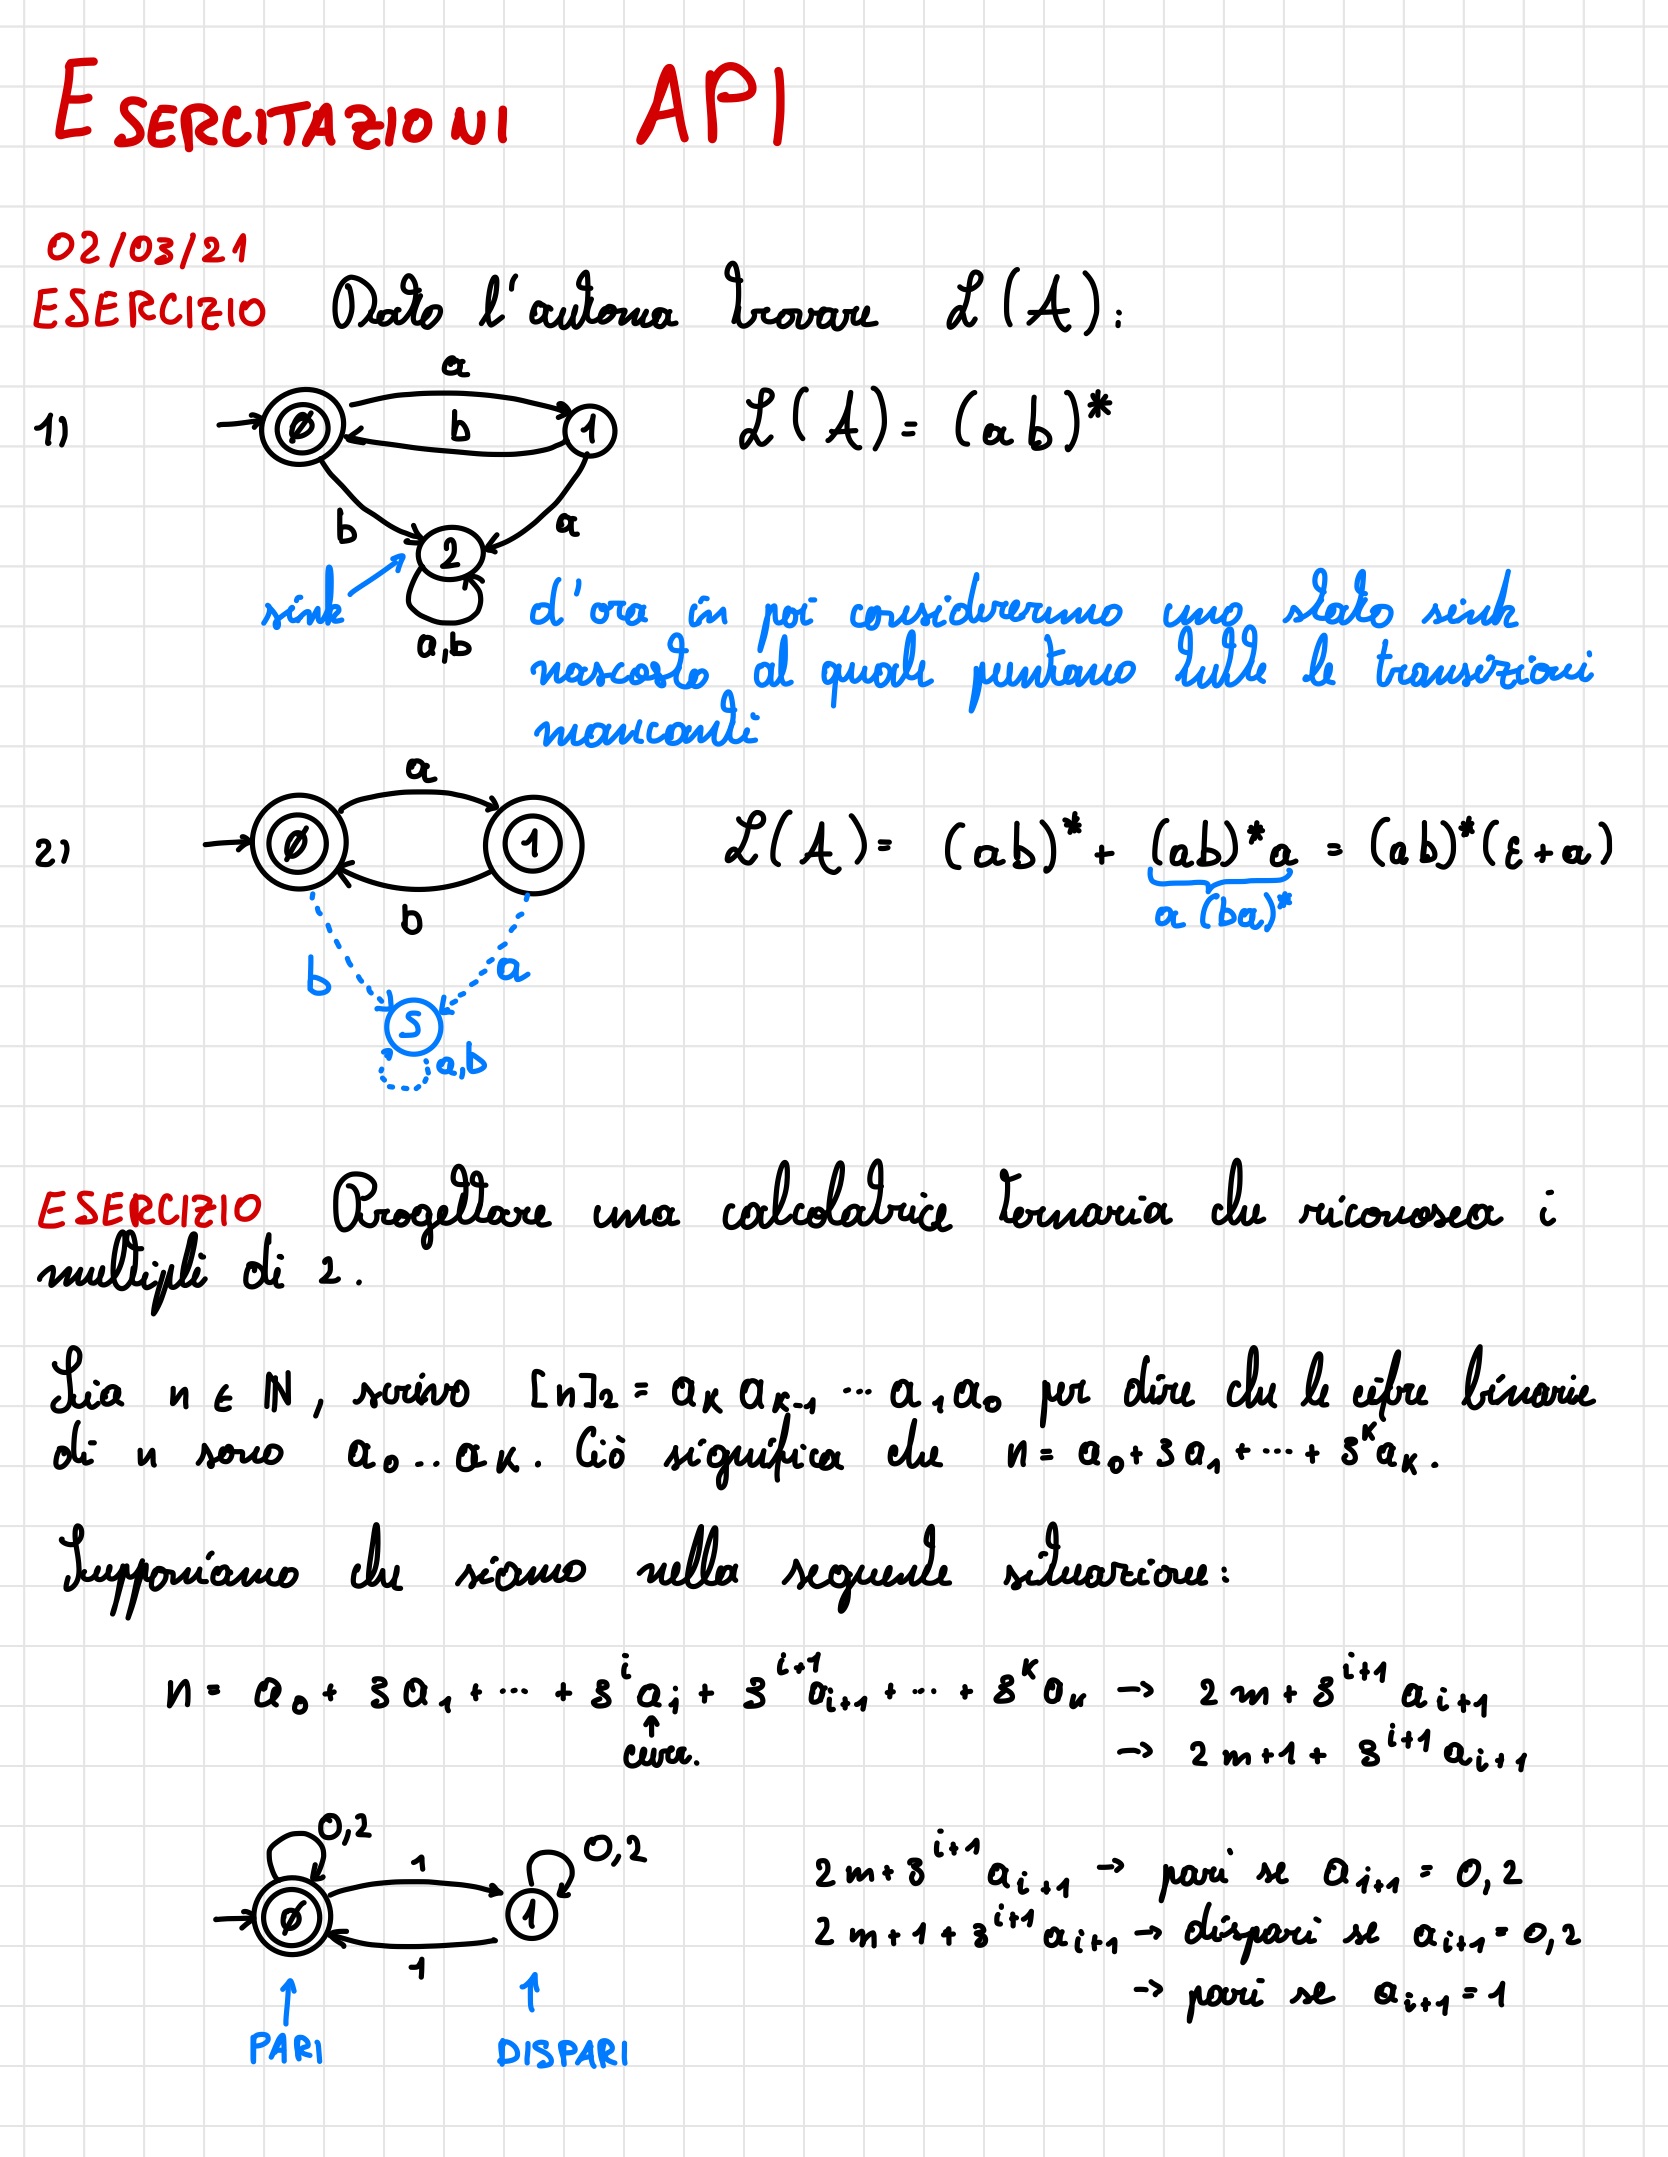 ESERCITAZIONI API
02/03/21
ESERCIZIO Dato l'automa trovare L(A):
a
1) ∅ b 1 L(A) = (ab)*
b a
2
sink d'ora in poi considereremo uno stato sink
a,b nascosto al quale puntano tutte le transizioni
mancanti
a
2) ∅ 1 L(A) = (ab)* + (ab)*a = (ab)*(ε+a)
b a(ba)*
b a
S
a,b
ESERCIZIO Progettare una calcolatrice ternaria che riconosca i
multipli di 2.
Sia n ∈ ℕ, scrivo [n]₂ = aₖ aₖ₋₁ ... a₁a₀ per dire che le cifre binarie
di n sono a₀..aₖ. Ciò significa che n = a₀ + 3a₁ + ... + 3ᵏaₖ.
Supponiamo che siamo nella seguente situazione:
n = a₀ + 3a₁ + ... + 3ⁱaᵢ + 3ⁱ⁺¹aᵢ₊₁ + ... + 3ᵏaₖ → 2m + 3ⁱ⁺¹ aᵢ₊₁
↑ → 2m+1 + 3ⁱ⁺¹ aᵢ₊₁
0,2 0,2
1 2m + 3ⁱ⁺¹ aᵢ₊₁ → pari se aᵢ₊₁ = 0,2
∅ 1 2m + 1 + 3ⁱ⁺¹ aᵢ₊₁ → dispari se aᵢ₊₁ = 0,2
1 → pari se aᵢ₊₁ = 1
PARI DISPARI